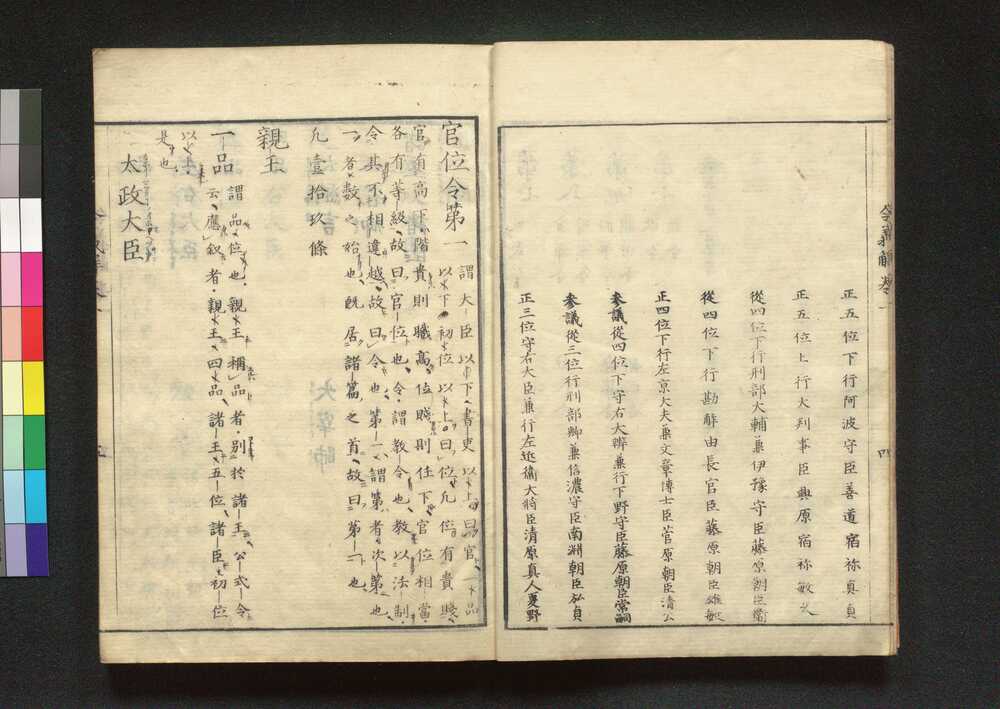 令義解卷一
四
正五位下行阿波守臣善道宿祢真貞
正五位上行大判事臣興原宿祢敏久
從四位下行刑部大輔兼伊豫守臣藤原朝臣衛
從四位下行勘解由長官臣藤原朝臣雄敏
正四位下行左京大夫兼文章博士臣菅原朝臣清公
參議從四位下守右大辨兼行下野守臣藤原朝臣常嗣
參議從三位行刑部卿兼信濃守臣南淵朝臣弘貞
正三位守右大臣兼行左近衛大將臣清原真人夏野
官位令第一 謂大臣以下書吏以上曰官一品
以下初位以上曰位凡位有貴賤
官有高下階貴則職高位賤則任下官位相當
各有等級故曰官位也令謂教令也教以法制
令其不相違越故曰令也第一謂第者次第也
一者數之始也既居諸篇之首故曰第一也
凡壹拾玖條
親王
一品 謂品位也親王稱品者別於諸王公式令
云應叙者親王四品諸王五位諸臣初位
以上是也
太政大臣